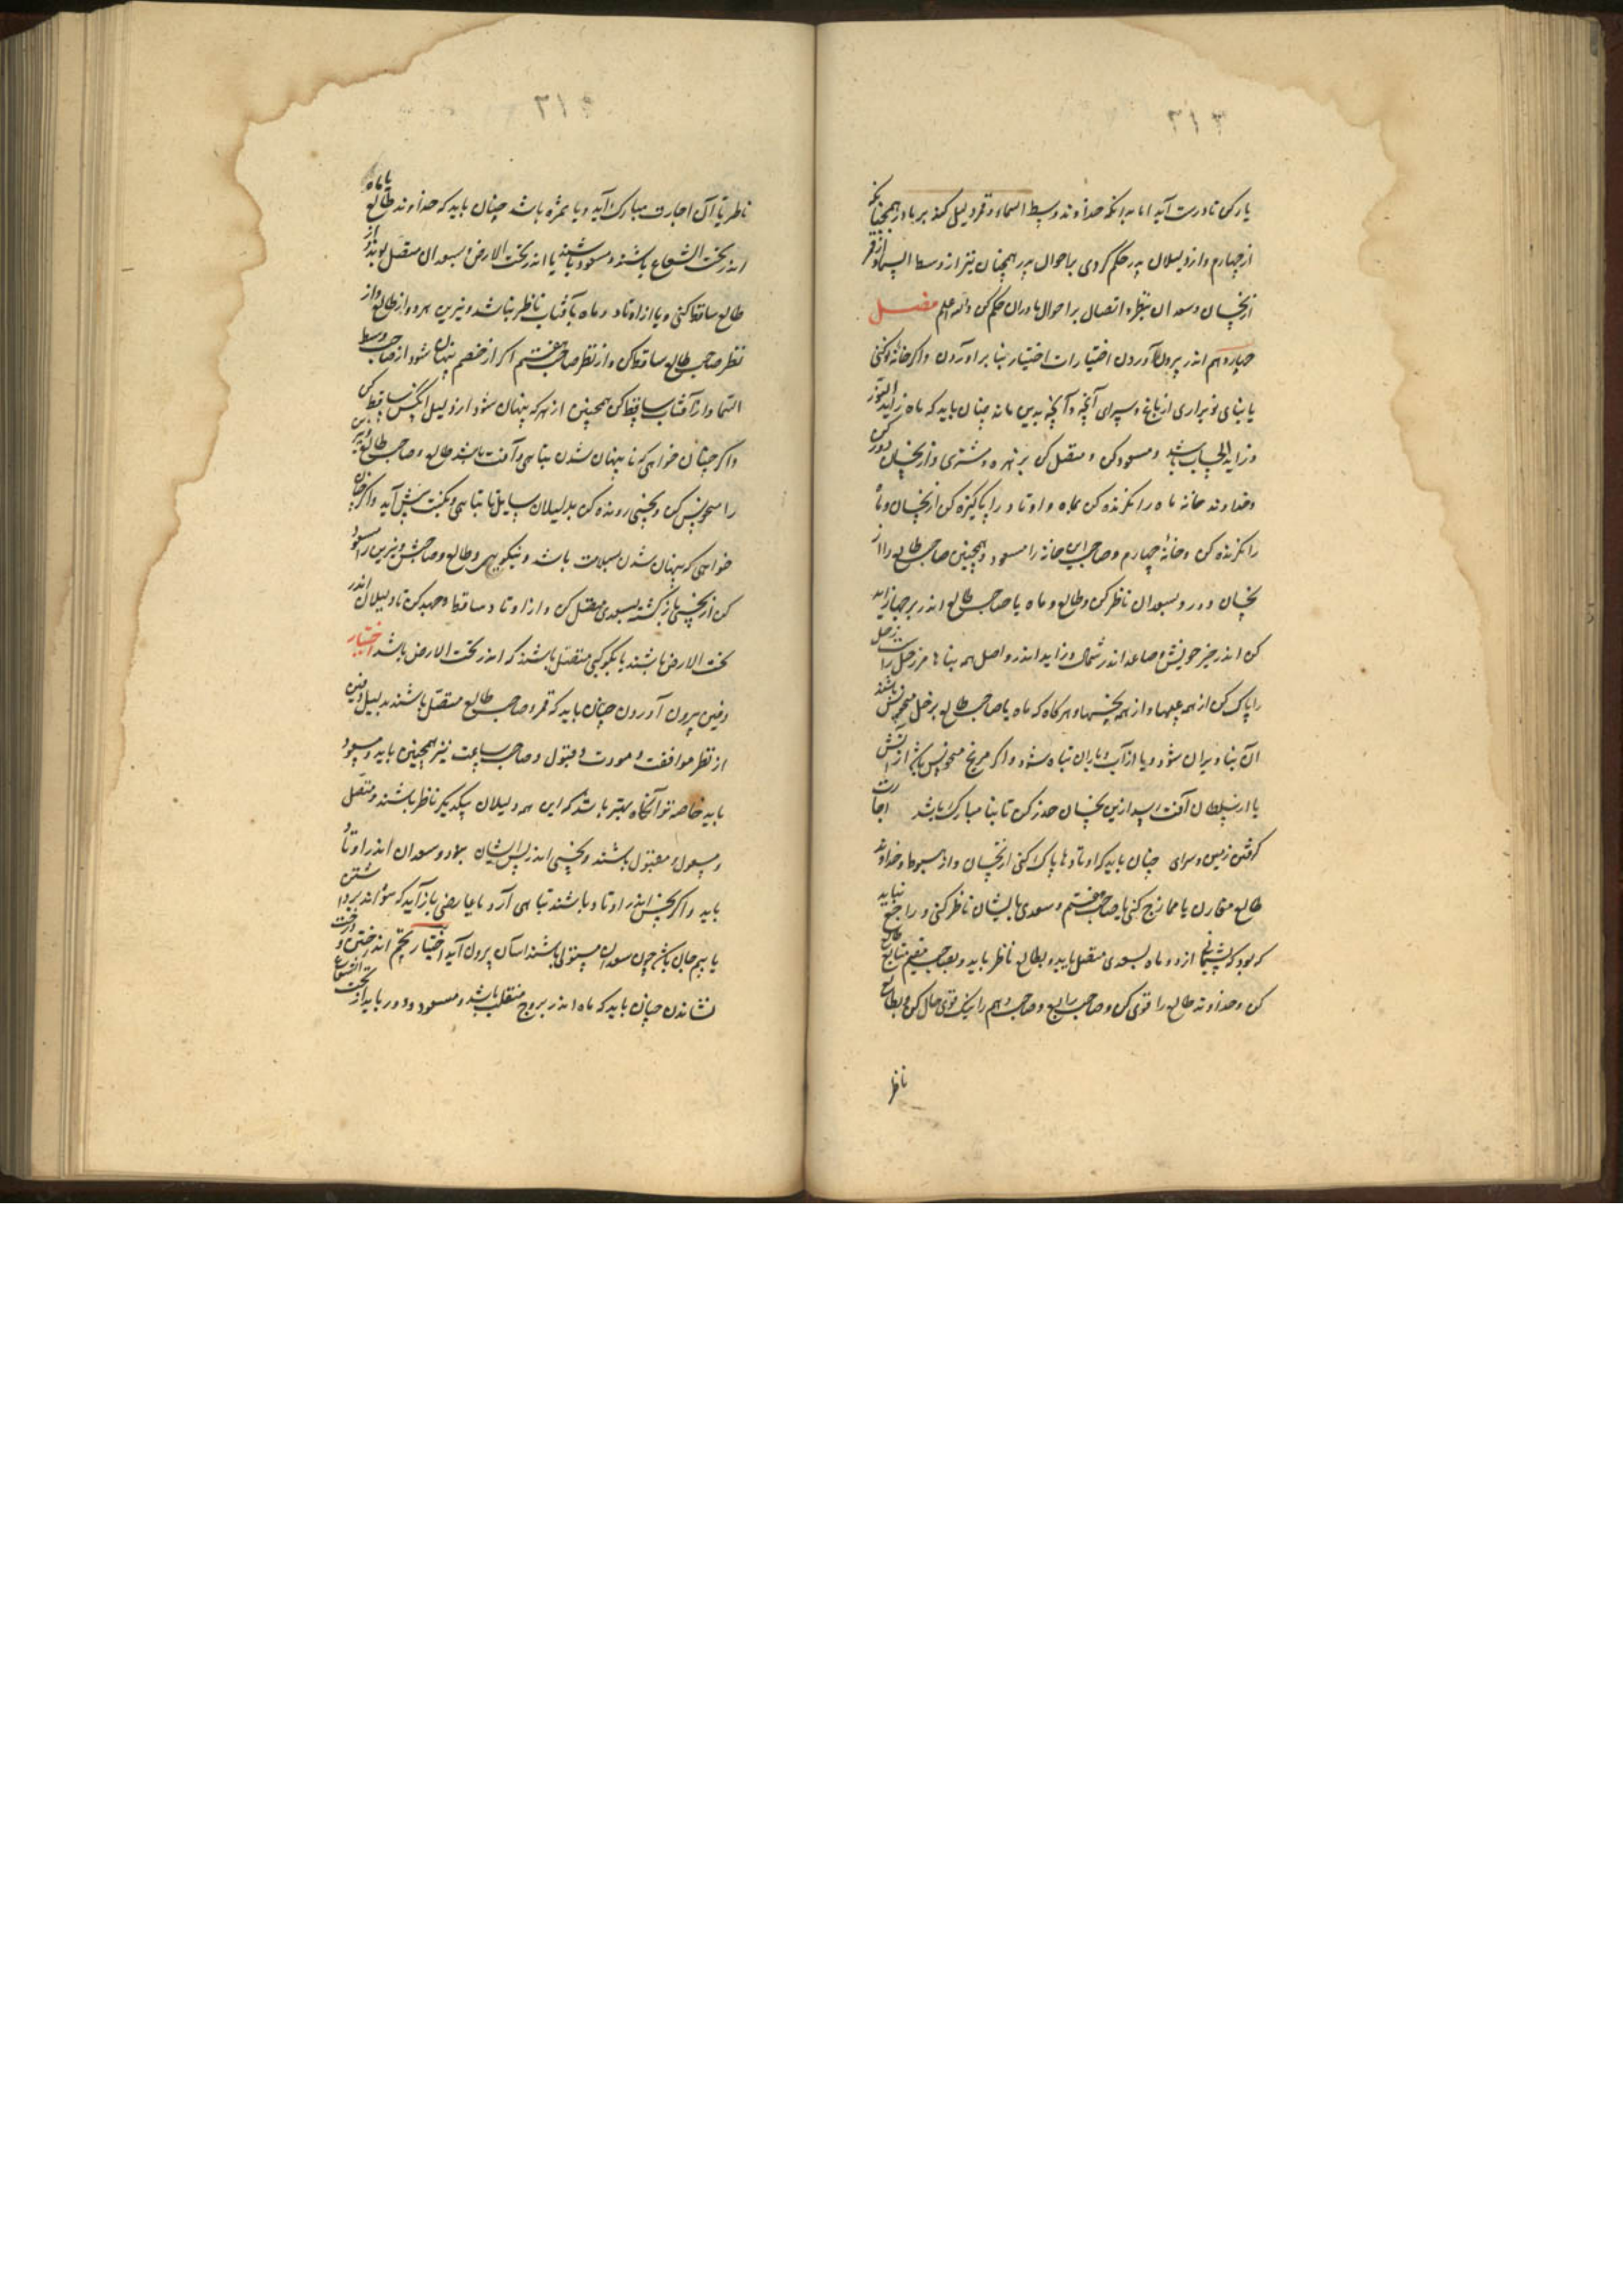 ۳۱۳
یا رکن تا درست آید اما بدانکه خداوند وسط السماء و قمر دلیل کند بر مادر همچنانکه
از چهارم و از دلیلان پدر حکم کردی باحوال پدر همچنان نیز از وسط السماء و از قمر
از نحسان و سعدان بنظر و اتصال بر احوال مادران حکم کن والله اعلم فصل
چهاردهم اندر بیرون آوردن اختیارات اختیار بنا برآوردن و اگر خانه نو کنی
یا بنای نو برآری از باغ و سرای و آنچه بدین ماند چنان باید که ماه زاید النور
و زاید الحساب باشد و مسعود کن و متصل کن بزهره و مشتری و از نحسان دور کن
و خداوند خانه ماه را نگرنده کن بماه و اوتاد را پاکیزه کن از نحسان و ماه
را نگرنده کن و خانه چهارم و صاحب این خانه را مسعود و همچنین صاحب طالع را از
نحسان دور و بسعدان ناظر کن و طالع و ماه یا صاحب طالع اندر برجها زاید
کن اندر حیز خویش و صاعد اندر شمال و زاید اندر و اصل همه بناها مر زحل راست زحل
را پاک کن از همه عیبها و از همه نحسیها و هرگاه که ماه یا صاحب طالع بزحل منحوس باشند
آن بنا ویران شود و یا از آب و باران تباه شود و اگر مریخ منحوس باشد از آتش
یا از سلطان آفت رسد ازین نحسان حذر کن تا بنا مبارک باشد اجارت
گرفتن زمین و سرای چنان باید که اوتادها پاک کنی از نحسان و از هبوط و خداوند
طالع مقارن یا ممازج کنی با صاحب هفتم و سعدی بایشان ناظر کنی و راجع نباید
که بود که پشیمانی ازو و ماه بسعدی متصل باید و بطالع ناظر باید و بصاحب
کن و خداوند طالع را قوی کن و صاحب رابع و صاحب دهم را نیک قوی حال کن و بطالع
ناظر
۳۱۴
ناظر تا آن اجارت مبارک آید و با مزه باشد چنان باید که خداوند طالع یا ماه
اندر تحت الشعاع باشند و مسعود باشند یا اندر تحت الارض بسعدان متصل بوند و از
طالع ساقط کنی و یا از اوتاد و ماه بآفتاب ناظر نباشد و نیرین هر دو از طالع و از
نظر صاحب طالع ساقط کن و از نظر صاحب هفتم اگر از خصم پنهان شود از صاحب وسط
السما و از آفتاب ساقط کن همچنین از هر که پنهان شود از دلیل آنکس ساقط کن
و اگر چنان خواهی که تا پنهان شدن بتباهی و آفت باشد طالع و صاحب طالع و نیرین
را منحوس کن و نحسی رونده کن بدلیلان سایل تا بتباهی و نکبت پیش آید و اگر چنان
خواهی که پنهان شدن بسلامت باشد و نیکویی طالع و صاحبش و نیرین را مسعود
کن از نحسی بازگشته بسعدی متصل کن و از اوتاد ساقط و جهد کن تا دلیلان اندر
تحت الارض باشند یا بکوکبی متصل باشند که اندر تحت الارض باشد اختیار
دفین بیرون آوردن چنان باید که قمر و صاحب طالع متصل باشند بدلیل دفین
از نظر موافقت و مودت و قبول و صاحب ساعت نیز همچنین باید و مسعود
باید خاصه تو آنگاه بهتر باشد که این همه دلیلان بیکدیگر ناظر باشند و متصل
و مسعود و مقبول باشند و نحسی اندر پس ایشان نبود و سعدان اندر اوتاد
باید و اگر نحس اندر اوتاد باشند تباهی آرد یا عارضی باز آید که نتواند برداشتن
یا بیم جان باشد چون سعدان مستولی باشند آسان بیرون آید اختیار تخم انداختن و درخت
نشاندن چنان باید که ماه اندر بروج منقلب باشد و مسعود و دور باید از تحت الشعاع